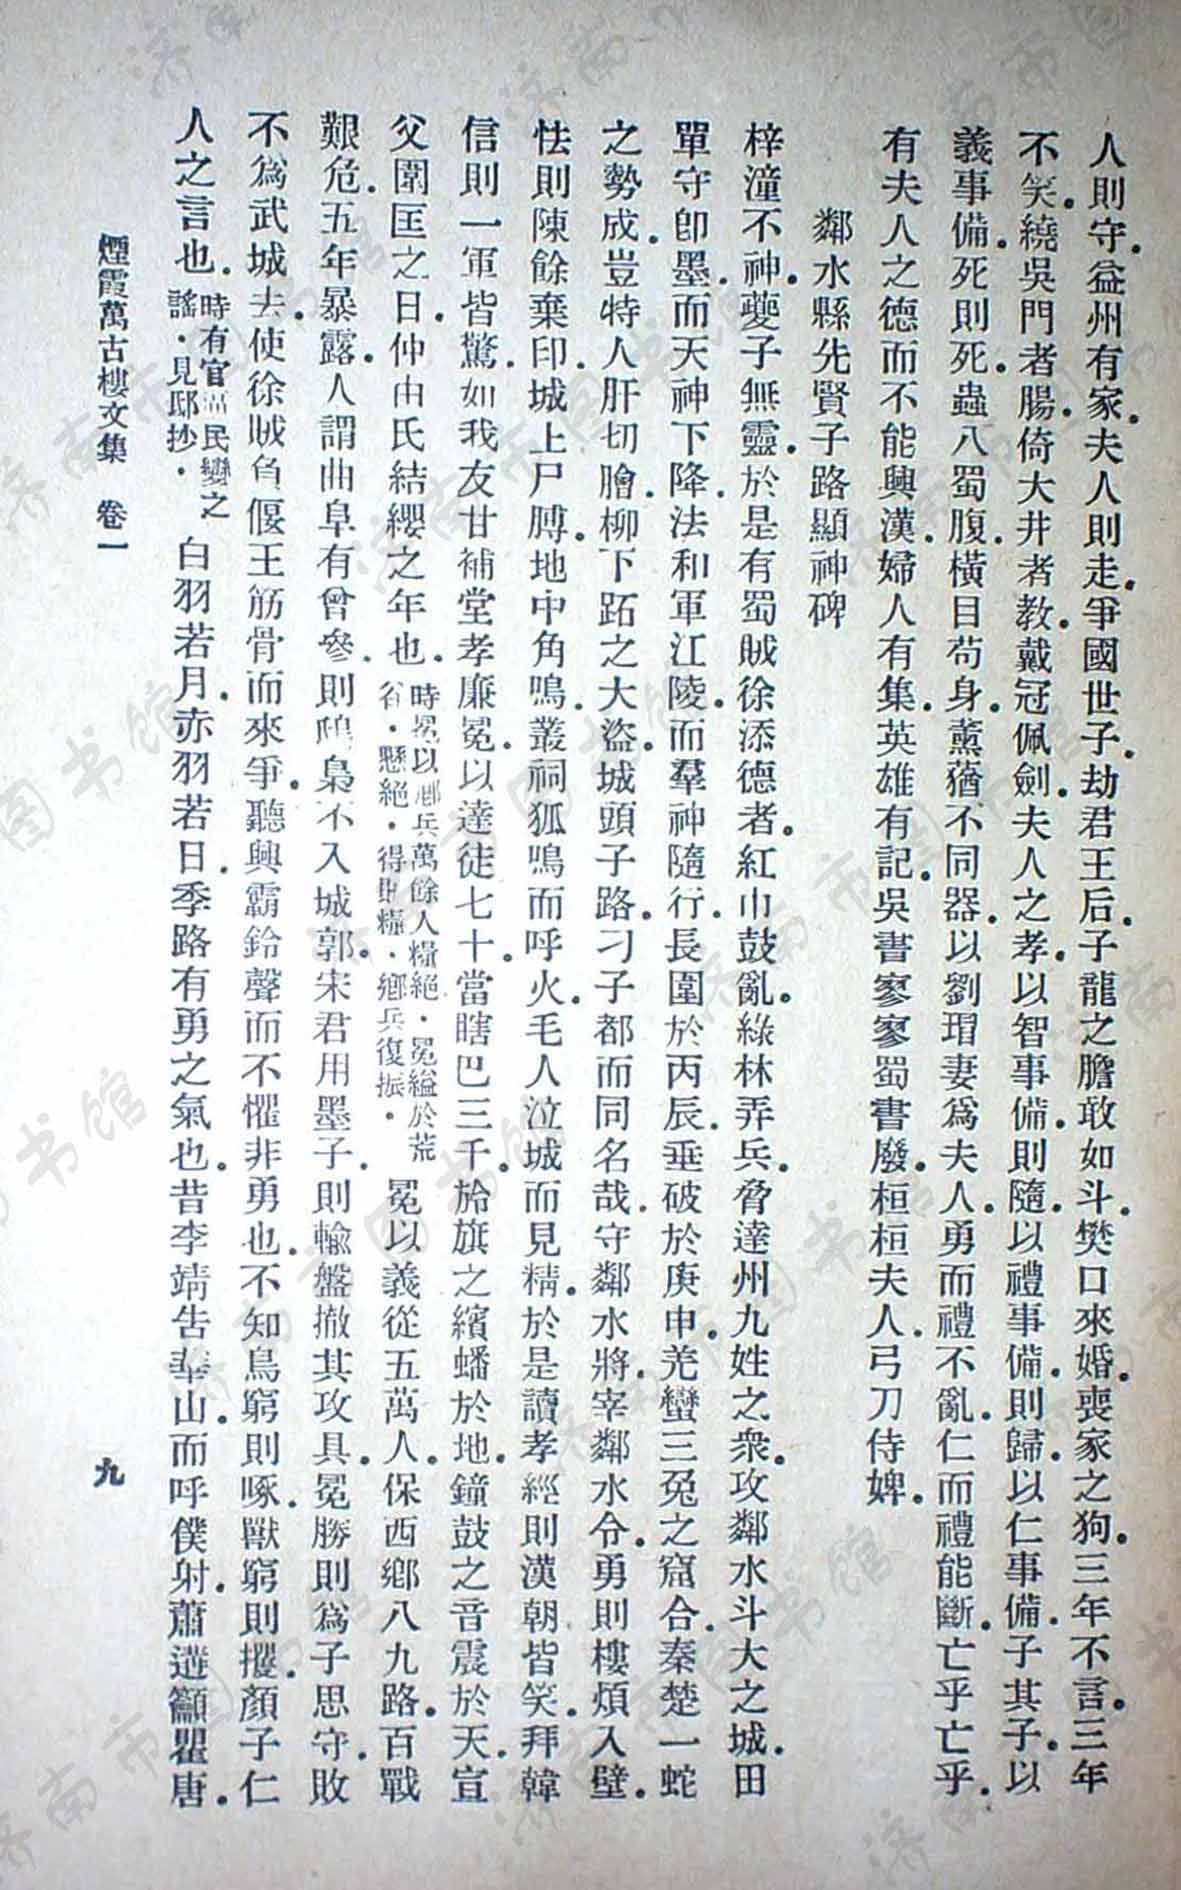 人則守。益州有家。夫人則走。爭國世子。劫君王后。子龍之膽敢如斗。樊口來婚。喪家之狗。三年不言。三年
不笑。繞吳門者腸。倚大井者教。戴冠佩劍。夫人之孝。以智事備。則隨。以禮事備。則歸。以仁事備。子其子。以
義事備。死則死。蟲八蜀腹。橫目苟身。薰蕕不同器。以劉瑁妻爲夫人。勇而禮不亂。仁而禮能斷。亡乎亡乎。
有夫人之德而不能興漢。婦人有集。英雄有記。吳書寥寥蜀書廢。桓桓夫人。弓刀侍婢。
鄰水縣先賢子路顯神碑
梓潼不神。夔子無靈。於是有蜀賊徐添德者。紅巾鼓亂。綠林弄兵。脅達州九姓之衆。攻鄰水斗大之城。田
單守卽墨。而天神下降。法和軍江陵。而羣神隨行。長圍於丙辰。垂破於庚申。羌蠻三兔之窟合。秦楚一蛇
之勢成。豈特人肝切膾。柳下跖之大盜。城頭子路。刁子都而同名哉。守鄰水將。宰鄰水令。勇則樓煩入壁。
怯則陳餘棄印。城上尸膊。地中角鳴。叢祠狐鳴而呼火。毛人泣城而見精。於是讀孝經則漢朝皆笑。拜韓
信則一軍皆驚。如我友甘補堂孝廉冕。以達徒七十。當瞎巴三千。旍旗之繽蟠於地。鐘鼓之音震於天。宣
父圍匡之日。仲由氏結纓之年也。時冕以鄉兵萬餘人糧絕。冕縋於荒
谷。懸絕。得助糧。鄉兵復振。冕以義從五萬人。保西鄉八九路。百戰
艱危。五年暴露。人謂曲阜有曾參。則鴟梟不入城郭。宋君用墨子。則輸盤撤其攻具。冕勝則爲子思守。敗
不爲武城去。使徐賊負偃王筋骨而來爭。聽興霸鈴聲而不懼。非勇也。不知鳥窮則啄。獸窮則攫。顏子仁
人之言也。時有官逼民變之
謠。見邸抄。白羽若月。赤羽若日。季路有勇之氣也。昔李靖告華山。而呼僕射。蕭遘籲瞿唐。
煙霞萬古樓文集 卷一
九